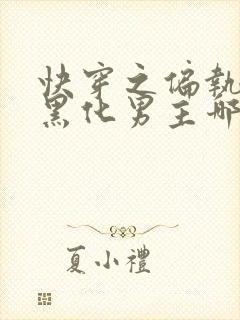 快穿之偏執
黑化男主哪
夏小禮